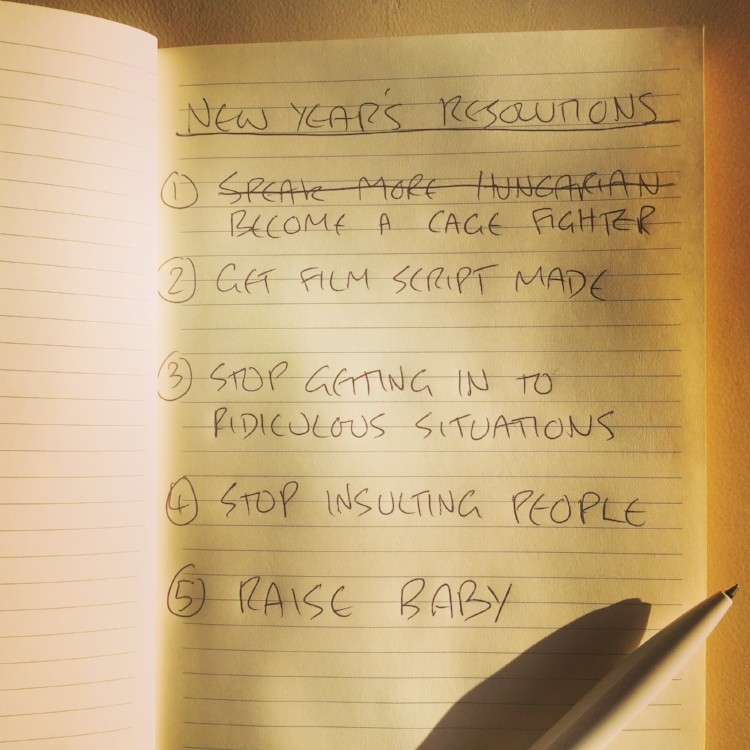 NEW YEAR'S RESOLUTIONS
① SPEAK MORE HUNGARIAN
BECOME A CAGE FIGHTER
② GET FILM SCRIPT MADE
③ STOP GETTING IN TO
RIDICULOUS SITUATIONS
④ STOP INSULTING PEOPLE
⑤ RAISE BABY